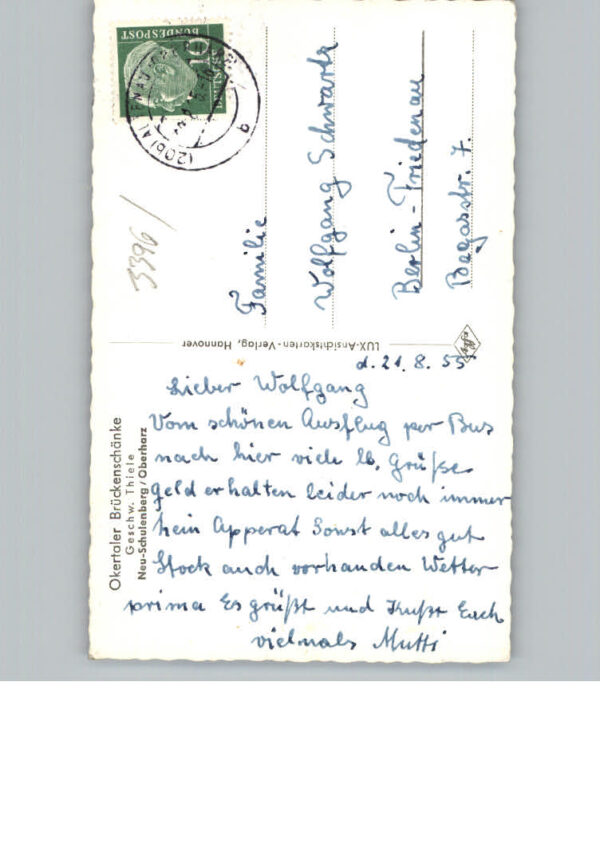 Okertaler Brückenschänke
Geschw. Thiele
Neu-Schulenberg/Oberharz
d. 21. 8. 55
Lieber Wolfgang
Vom schönen Ausflug per Bus
nach hier viele lb. Grüße
Geld erhalten leider noch immer
kein Apperat Sonst alles gut
Stock auch vorhanden Wetter
prima Es grüßt und Küßt Euch
vielmals Mutti
LUX-Ansichtskarten-Verlag, Hannover
Familie
Wolfgang Schwartz
Berlin-Friedenau
Begasstr. 7.
3396/
DEUTSCHE
BUNDESPOST
10
(20b)
a